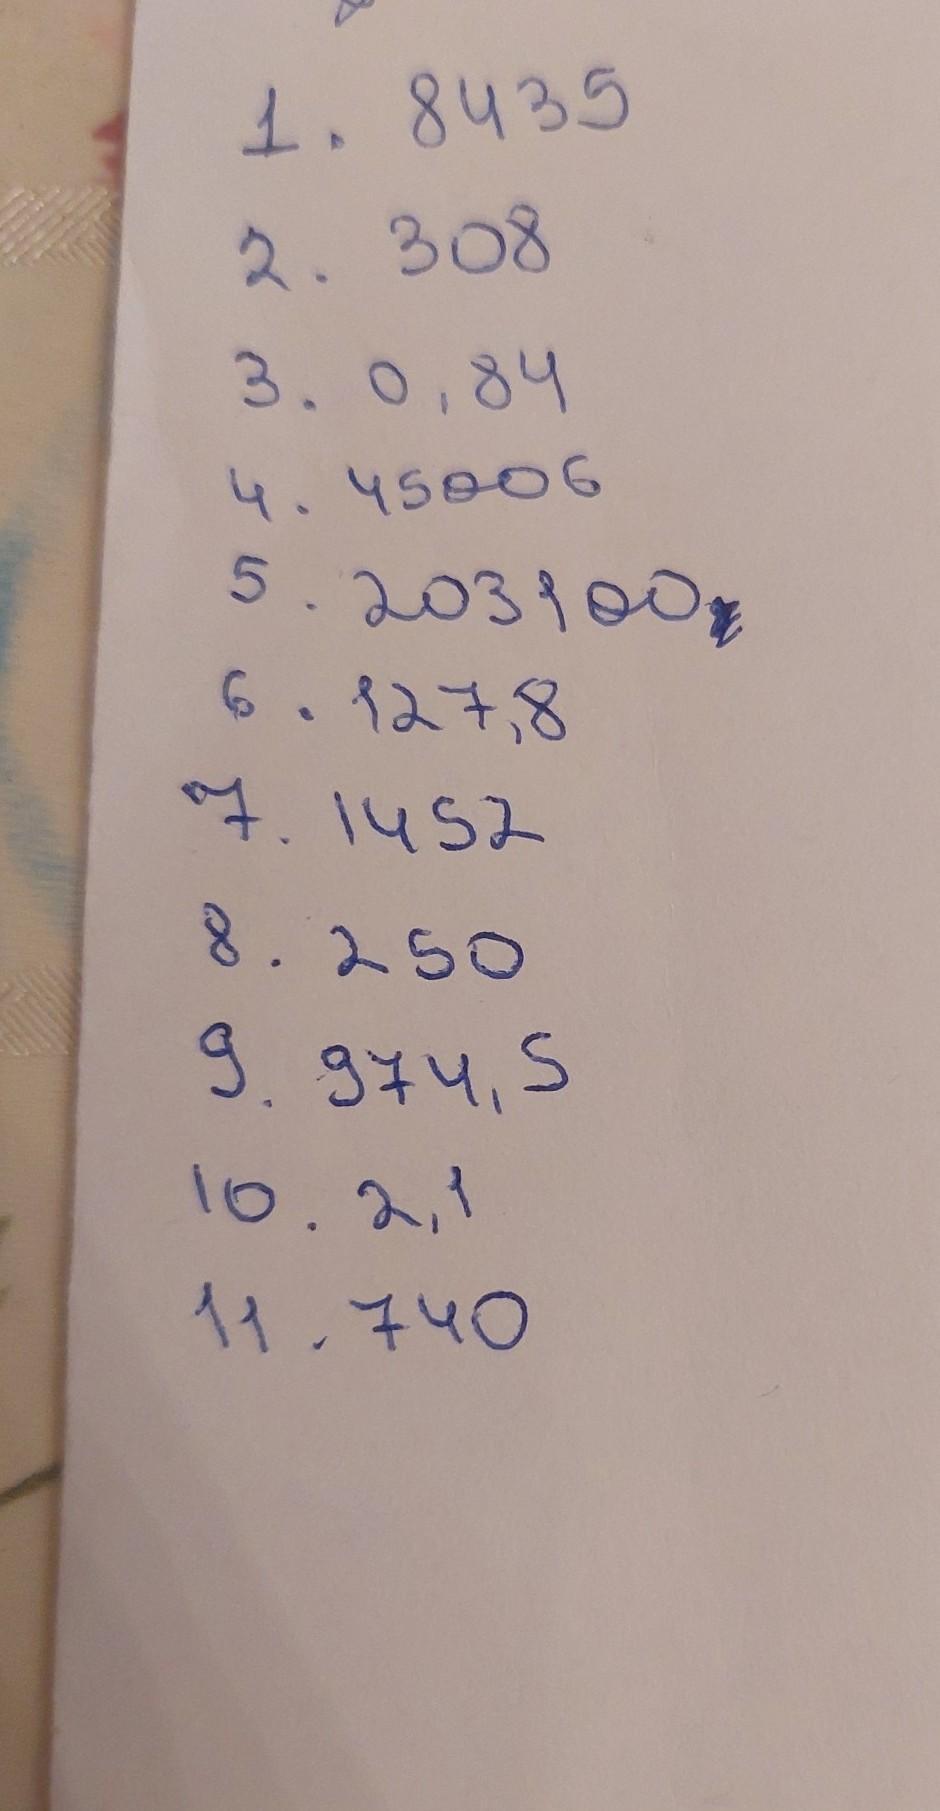 1. 8435
2. 308
3. 0,84
4. 45006
5. 203100
6. 127,8
7. 1452
8. 250
9. 974,5
10. 2,1
11. 740